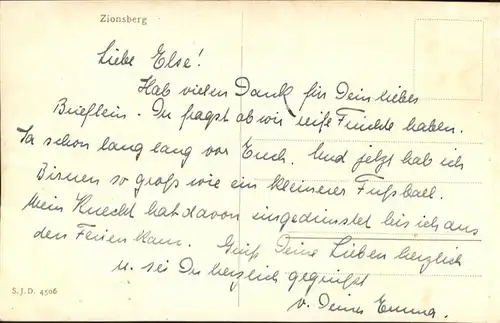 Zionsberg
Liebe Else!
Hab vielen Dank für Dein liebes
Brieflein. Du fragst ob wir reife Früchte haben.
Ja schon lang lang vor Euch. Und jetzt hab ich
Birnen so groß wie ein kleinerer Fußball.
Mein Knecht hat davon eingedunstet bis ich aus
den Ferien kam. Grüß Deine Lieben herzlich
u. sei Du herzlich gegrüßt
v. Deiner Emma.
S.J.D. 4506